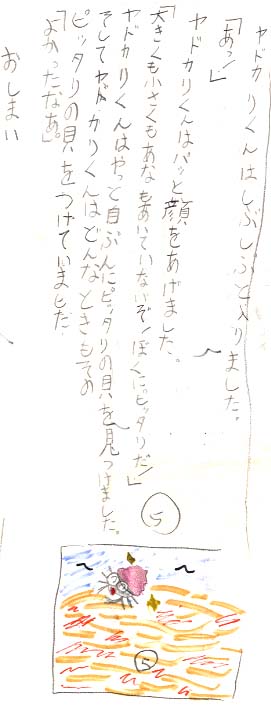 ヤドカリくんはしぶしぶと入りました。
「あっ!」
ヤドカリくんはパッと顔をあげました。
「大きくも小さくもあなもあいていないぞ!ぼくにピッタリだ!」
ヤドカリくんはやっと自ぶんにピッタリの貝を見つけました。
そしてヤドカリくんはどんなときもその
ピッタリの貝をつけていました。
「よかったなあ。」
おしまい
5
5